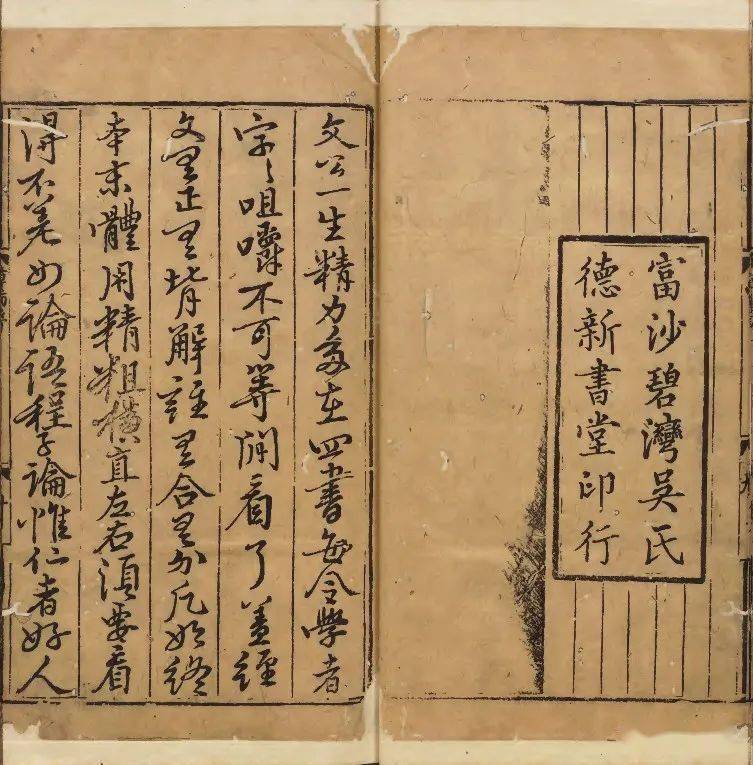 富沙碧灣吳氏
德新書堂印行
文公一生精力多在四書每令學者
字〻咀嚼不可等閒看了盖經
文有正有背解註有合有分凡始終
本末體用精粗横直左右須要看
得不差如論語程子論惟仁者好人